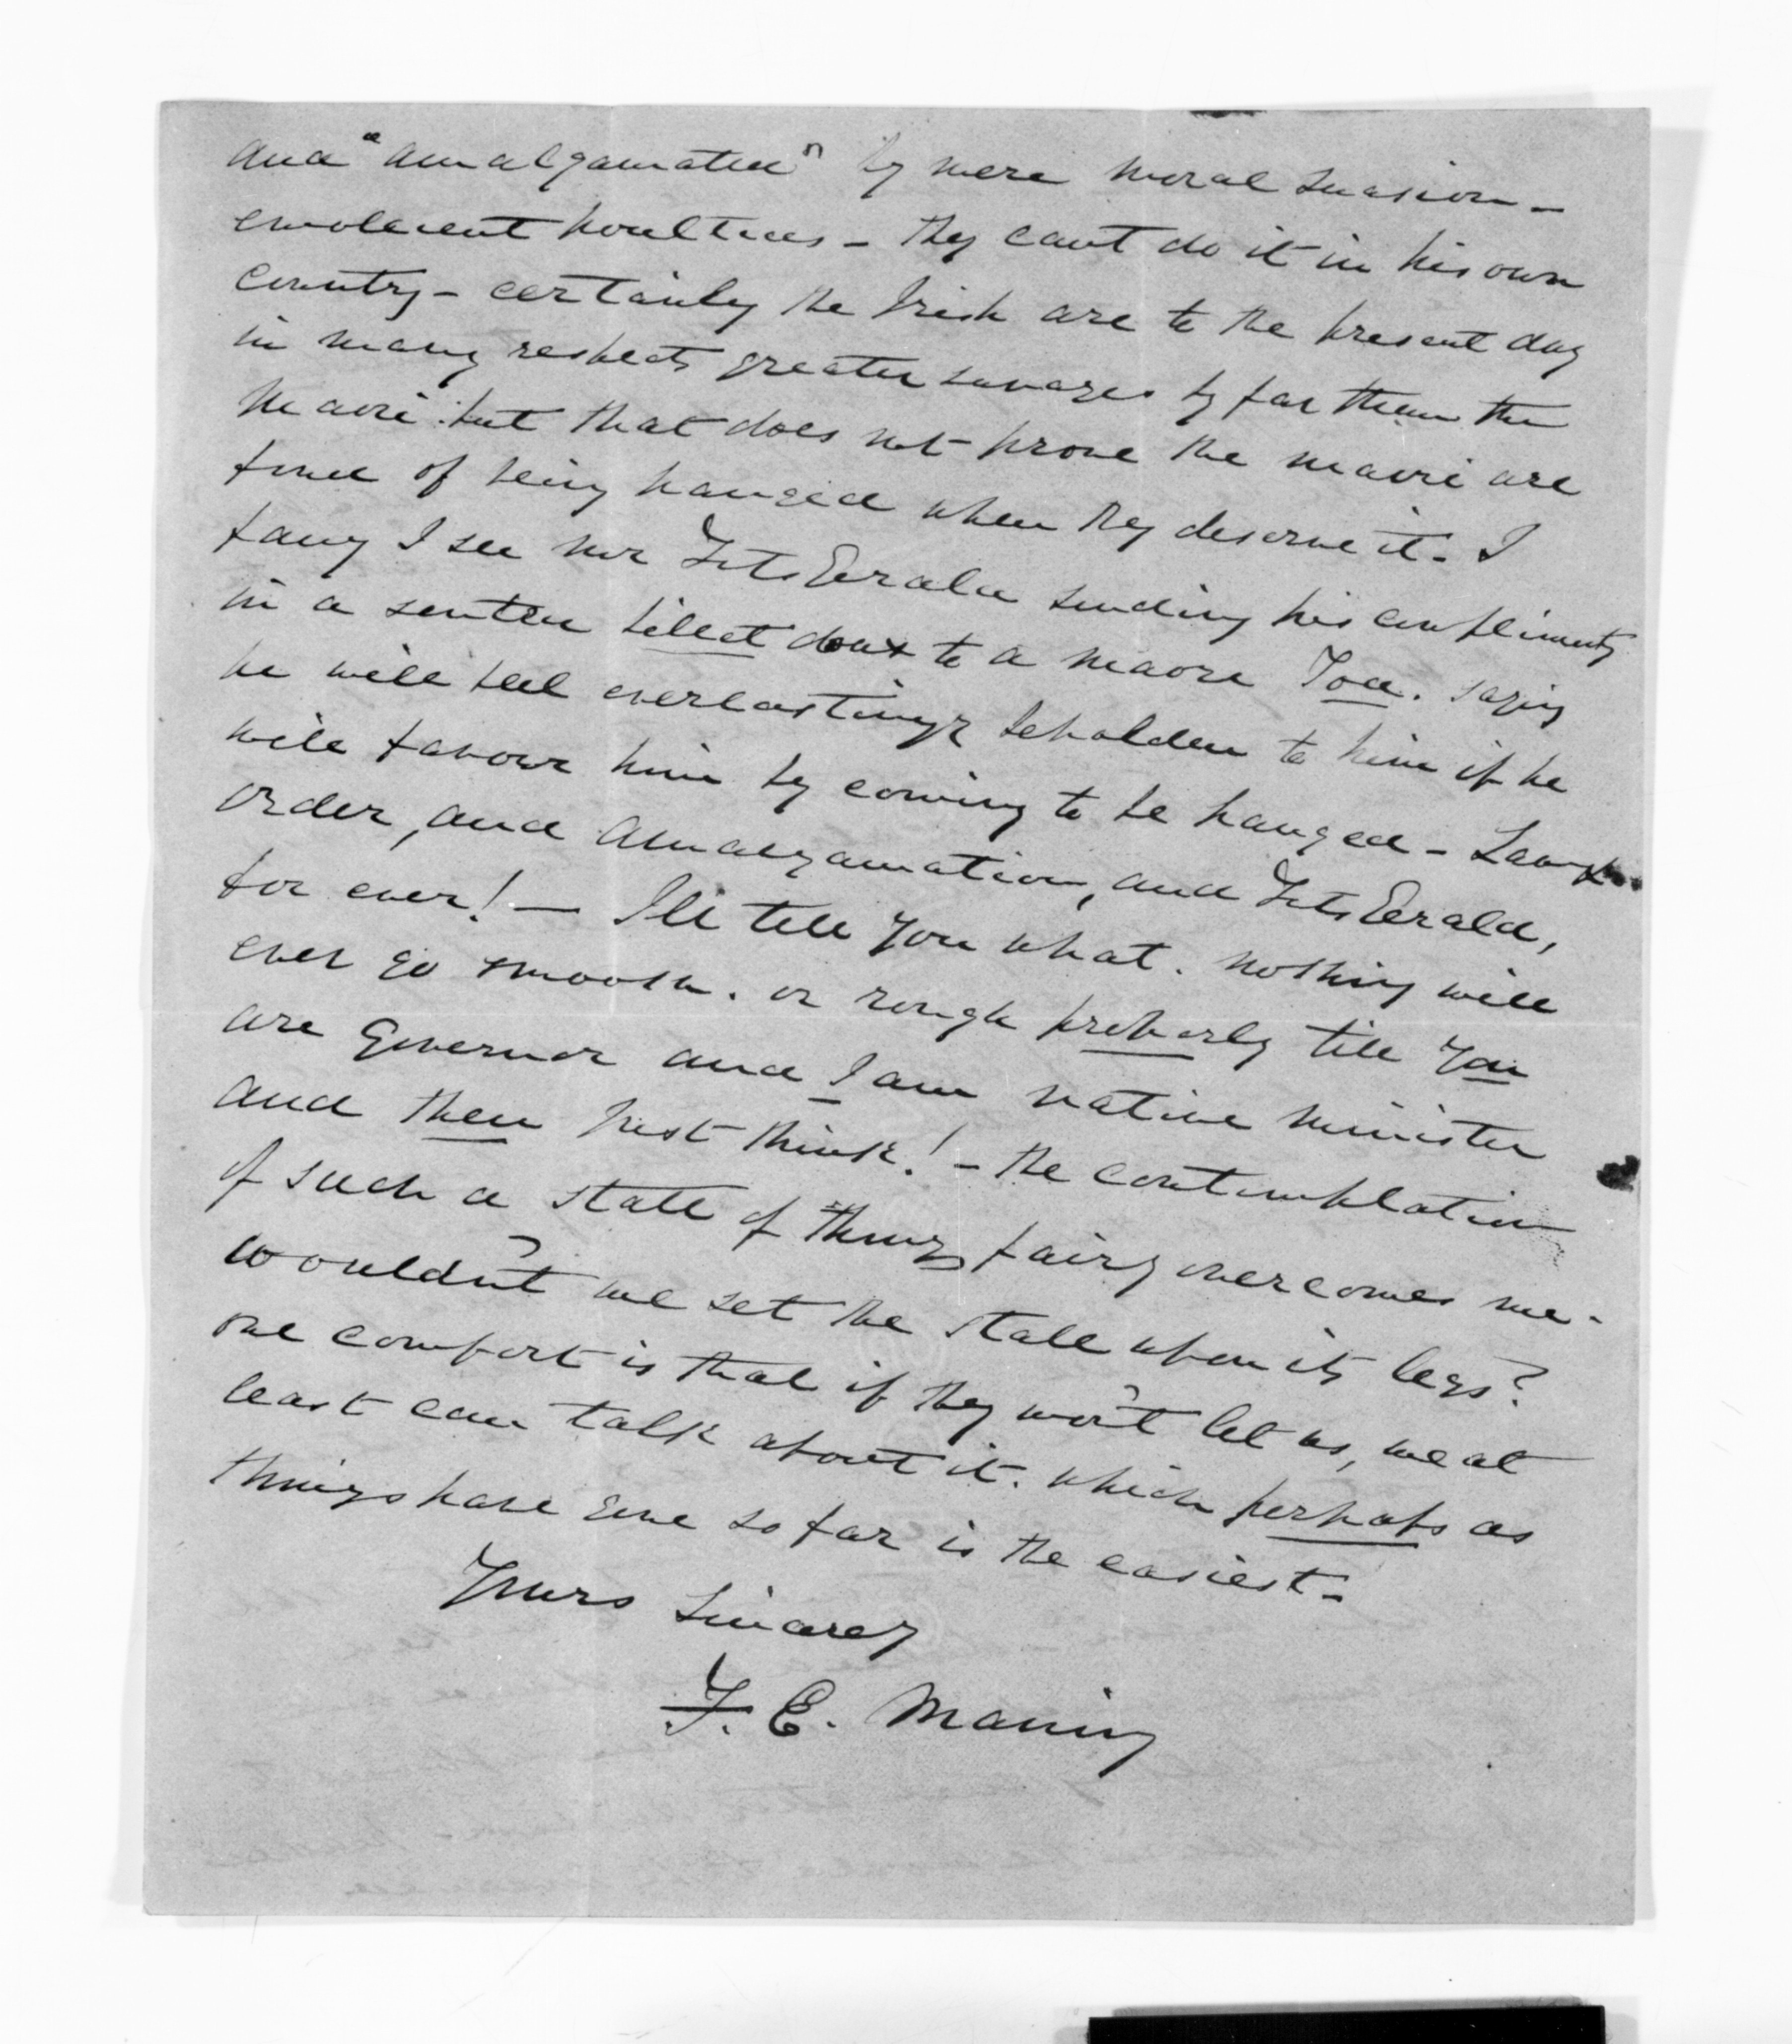 and "amalgamated" by mere moral suasion -
emolient poultices - they cant do it in his own
country - certainly the Irish are to the present day
in many respects greater savages by far than the
Maori. but that does not prove the maori are
fond of being hanged when they deserve it. I
fancy I see Mr FitzGerald sending his compliments
in a scented billet doux to a maori Toa. saying
he will feel everlastingly beholden to him if he
will favour him by coming to be hanged - Law &
order, and amalgamation, and FitzGerald,
for ever! - Ill tell you what. nothing will
ever go smooth. or rough properly till you
are Governor and I am native minister
and then just think! - the contemplation
of such a state of things fairly overcomes me -
wouldn't we set the state upon its legs?
one comfort is that if they won't let us, we at
least can talk about it. which perhaps as
things have gone so far is the easiest -
Yours Sincerely
F. E. Maning